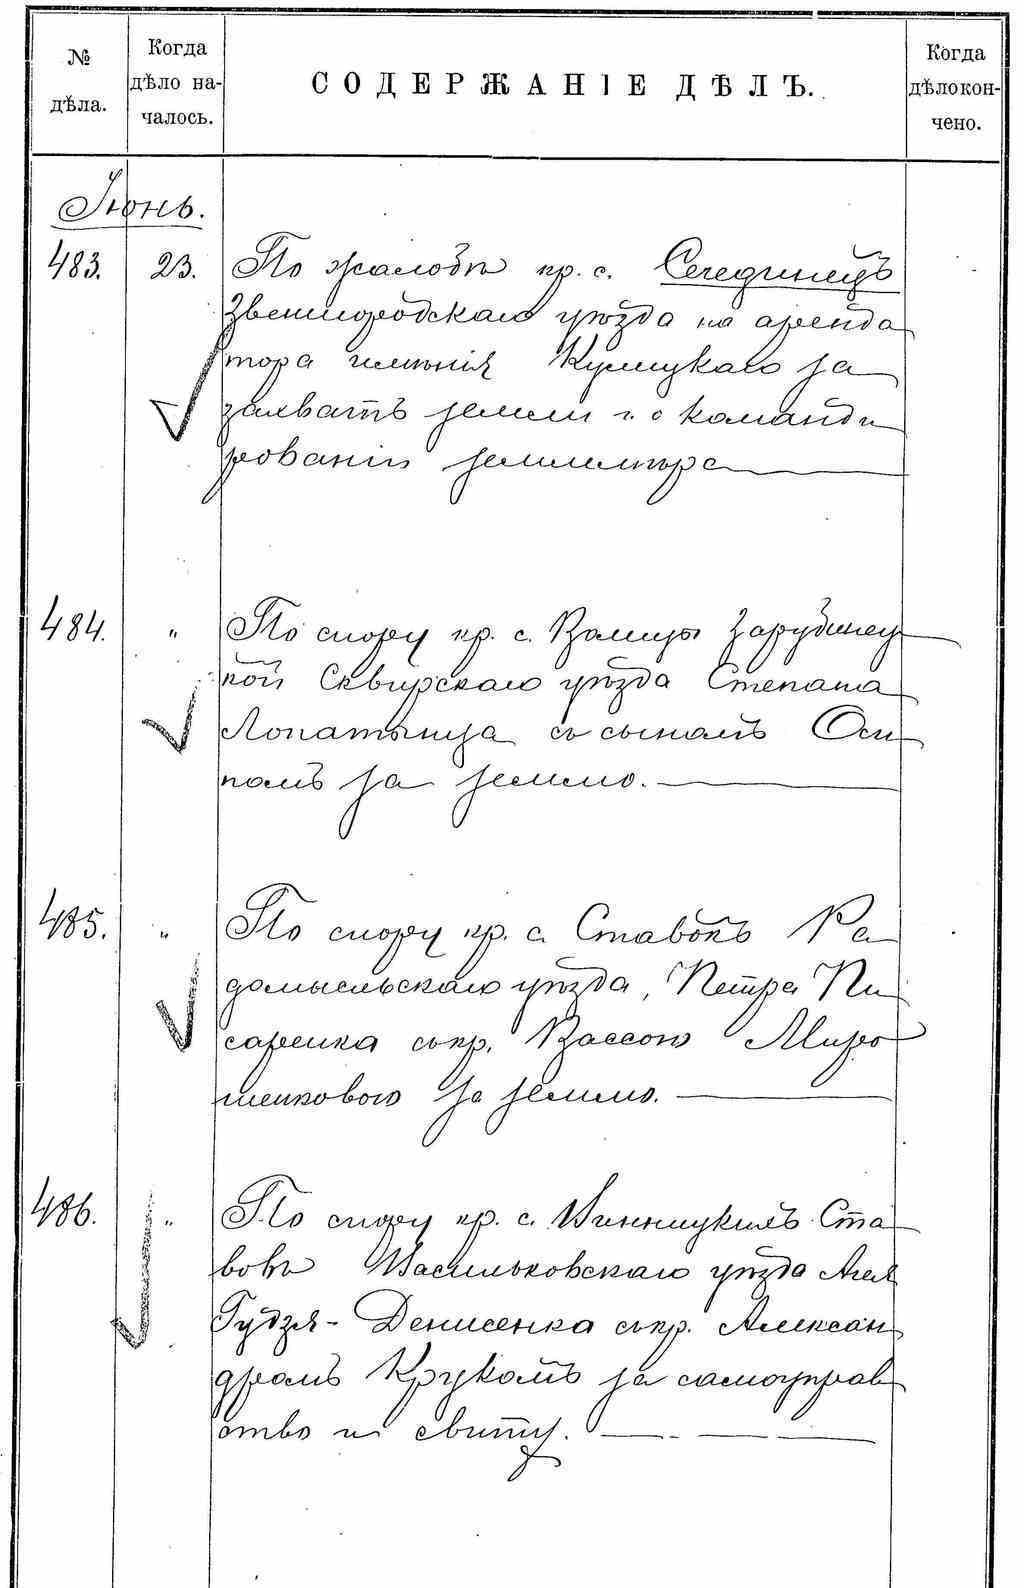 № дѣла.
Когда дѣло началось.
СОДЕРЖАНІЕ ДѢЛЪ.
Когда дѣло кончено.
Іюнь.
483. 23. По жалобѣ кр. с. Сегединецъ
Звенигородскаго уѣзда на аренда
тора имѣнія Кулицкаго за
захватъ земли и о команди
рованіи землемѣра
484. „ По спору кр. с. Волицы Зарубинец
кой Сквирскаго уѣзда Степана
Лопатынца съ сыномъ Оси
помъ за землю.
485. „ По спору кр. с. Ставокъ Ра
домысльскаго уѣзда, Петра Пи
саренка съ кр. Вассою Миро
шенковою за землю.
486. „ По спору кр. с. Винницкихъ Ста
вовъ Васильковскаго уѣзда
Гудзя - Денисенка съ кр. Алексан
дромъ Крукомъ за самоуправ
ство и свиту.